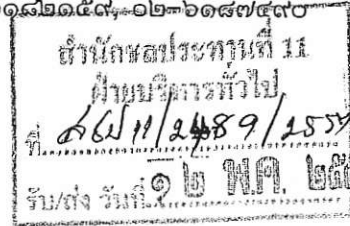 ๐๑๘๒๑๕๙, ๐๒-๖๑๘๗๔๙๐
สำนักชลประทานที่ 11
ฝ่ายบริหารทั่วไป
ที่ สชป 11/2489/255
รับ/ส่ง วันที่ ๑๒ พ.ค. ๒๕